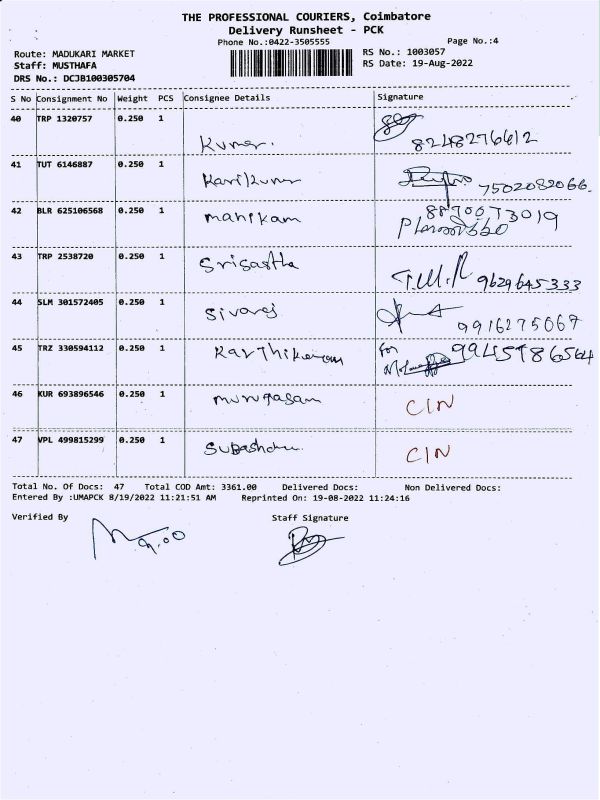 THE PROFESSIONAL COURIERS, Coimbatore
Delivery Runsheet - PCK
Phone No.:0422-3505555
Page No.:4
Route: MADUKARI MARKET
RS No.: 1003057
Staff: MUSTHAFA
RS Date: 19-Aug-2022
DRS No.: DCJB100305704
S No Consignment No Weight PCS Consignee Details Signature
40 TRP 1320757 0.250 1
Kumar. 8248276612
41 TUT 6146887 0.250 1
Harikumar 7502082066.
42 BLR 625106568 0.250 1
manikam 8870073019
43 TRP 2538720 0.250 1
Srisastha T.M.R 9629645333
44 SLM 301572405 0.250 1
Sivaraj 9916275067
45 TRZ 330594112 0.250 1
Karthikeyan for 9945986564
46 KUR 693896546 0.250 1
murugasam CIN
47 VPL 499815299 0.250 1
CIN
Total No. Of Docs: 47 Total COD Amt: 3361.00 Delivered Docs: Non Delivered Docs:
Entered By :UMAPCK 8/19/2022 11:21:51 AM Reprinted On: 19-08-2022 11:24:16
Verified By Staff Signature